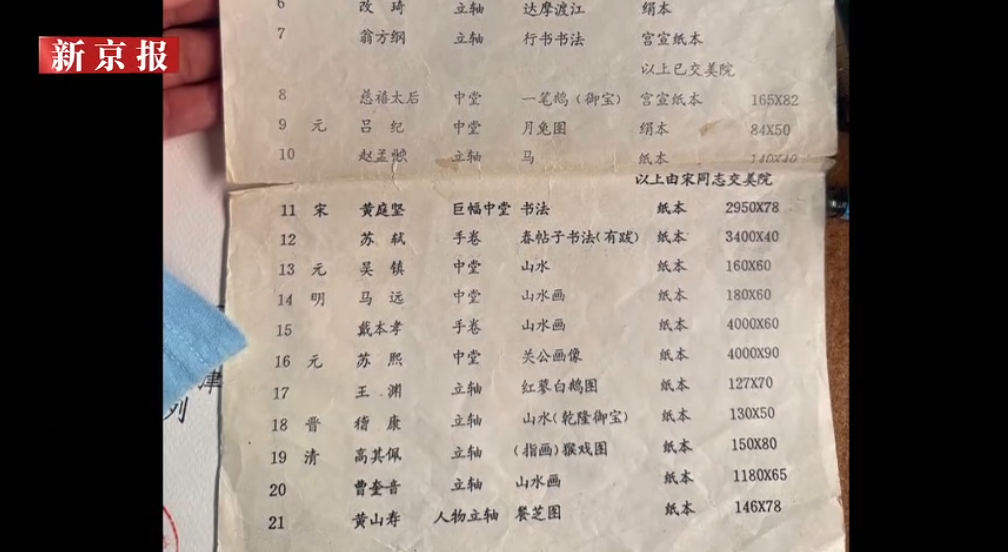 新京报
6 改 琦 立轴 达摩渡江 绢本
7 翁方纲 立轴 行书书法 宫宣纸本
以上已交美院
8 慈禧太后 中堂 一笔鹅（御宝） 宫宣纸本 165X82
9 元 吕 纪 中堂 月兔图 绢本 84X50
10 赵孟頫 立轴 马 纸本 140X40
以上由宋同志交美院
11 宋 黄庭坚 巨幅中堂 书法 纸本 2950X78
12 苏 轼 手卷 春帖子书法(有跋) 纸本 3400X40
13 元 吴 镇 中堂 山水 纸本 160X60
14 明 马 远 中堂 山水画 纸本 180X60
15 戴本孝 手卷 山水画 纸本 4000X60
16 元 苏 熙 中堂 关公画像 纸本 4000X90
17 王 渊 立轴 红蓼白鹅图 纸本 127X70
18 晋 稽 康 立轴 山水(乾隆御宝) 纸本 130X50
19 清 高其佩 立轴 (指画)猴戏图 纸本 150X80
20 曹奎音 立轴 山水画 纸本 1180X65
21 黄山寿 人物立轴 餐芝图 纸本 146X78
津
列